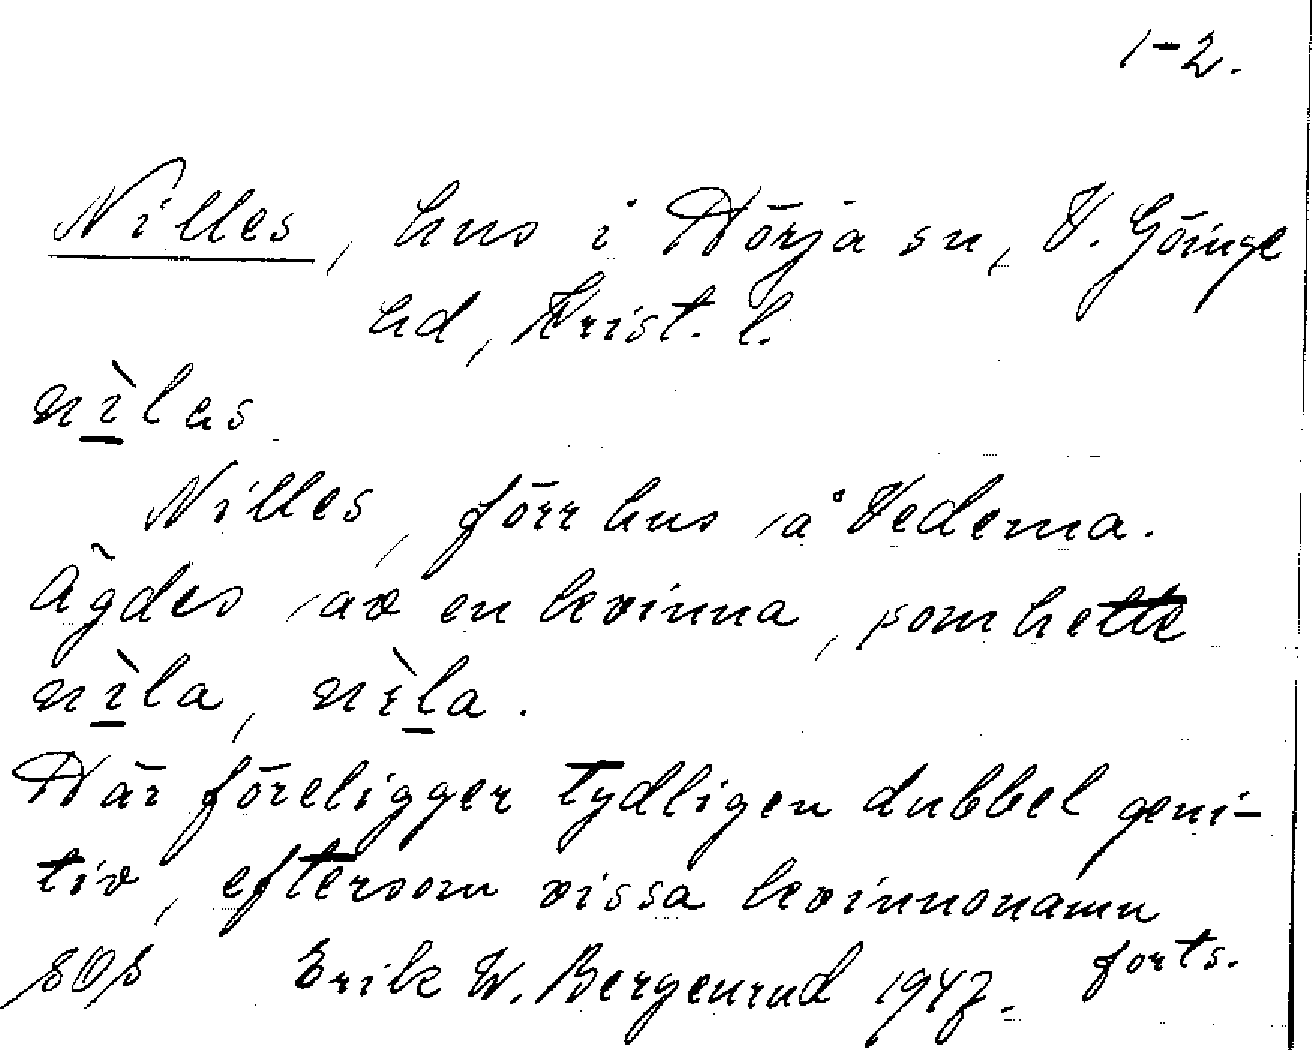 1-2.
Nilles, hus i Hörja sn, V. Göinge
hd, Krist. l.
nìlas
Nilles, förr hus å Vedema.
Ägdes av en kvinna, som hette
nìla, nìla.
Här föreligger tydligen dubbel geni-
tiv, eftersom vissa kvinnonamn
forts.
sOs Erik W. Bergenrud 1947.